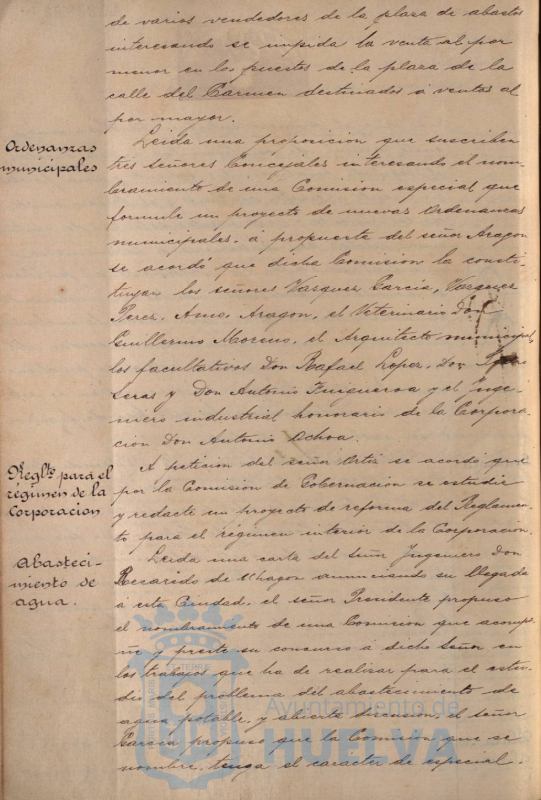 de varios vendedores de la plaza de abastos
interesando se impida la venta al por
menor en los puestos de la plaza de la
calle del Carmen destinados á ventas al
por mayor.
Ordenanzas
municipales
Leida una proposicion que suscriben
tres señores Concejales interesando el nom-
bramiento de una Comision especial que
formule un proyecto de nuevas Ordenanzas
municipales, á propuesta del señor Aragon
se acordó que dicha Comision la consti-
tuyan los señores Vazquez Garcia, Vazquez
Perez, Amo, Aragon, el Veterinario Don
Guillermo Moreno, el Arquitecto municipal,
los facultativos Don Rafael Lopez, Don
Seras y Don Antonio Figueroa y el Inge-
niero industrial honorario de la Corpora-
cion Don Antonio Ochoa.
Reglto para el
régimen de la
Corporacion
A peticion del señor Ortiz se acordó que
por la Comision de Gobernacion se estudie
y redacte un proyecto de reforma del Reglamen-
to para el régimen interior de la Corporacion.
Abasteci-
miento de
agua.
Leida una carta del señor Ingeniero Don
Recaredo de Uhagon anunciando su llegada
á esta Ciudad, el señor Presidente propuso
el nombramiento de una Comision que acompa-
ñe y preste su concurso á dicho Señor en
los trabajos que ha de realizar para el estu-
dio del problema del abastecimiento de
agua potable, y abierta discusion, el señor
Garcia propuso que la Comision que se
nombre, tenga el caracter de especial.
Ayuntamiento de
HUELVA